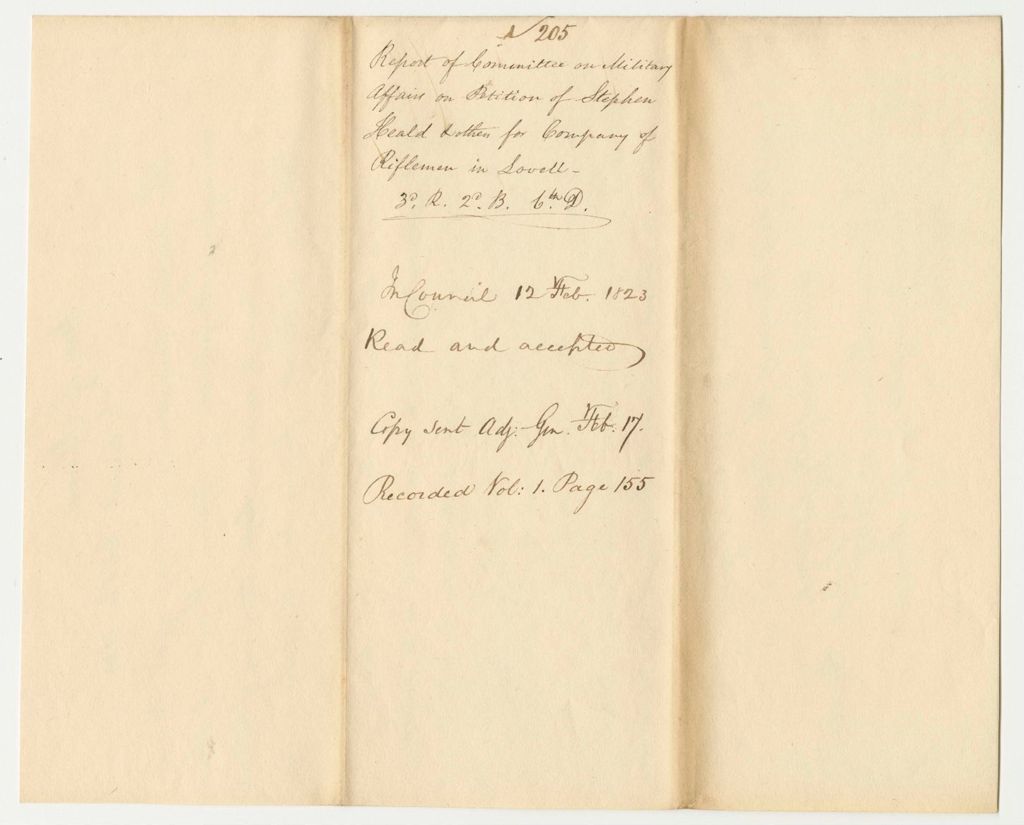 N 205
Report of Committee on Military
Affairs on Petition of Stephen
Heald & others for Company of
Riflemen in Lovell -
3d. R. 2d. B. 6th. D.
In Council 12 Feb. 1823
Read and accepted
Copy sent Adj. Gen. Feb. 17.
Recorded Vol: 1. Page 155